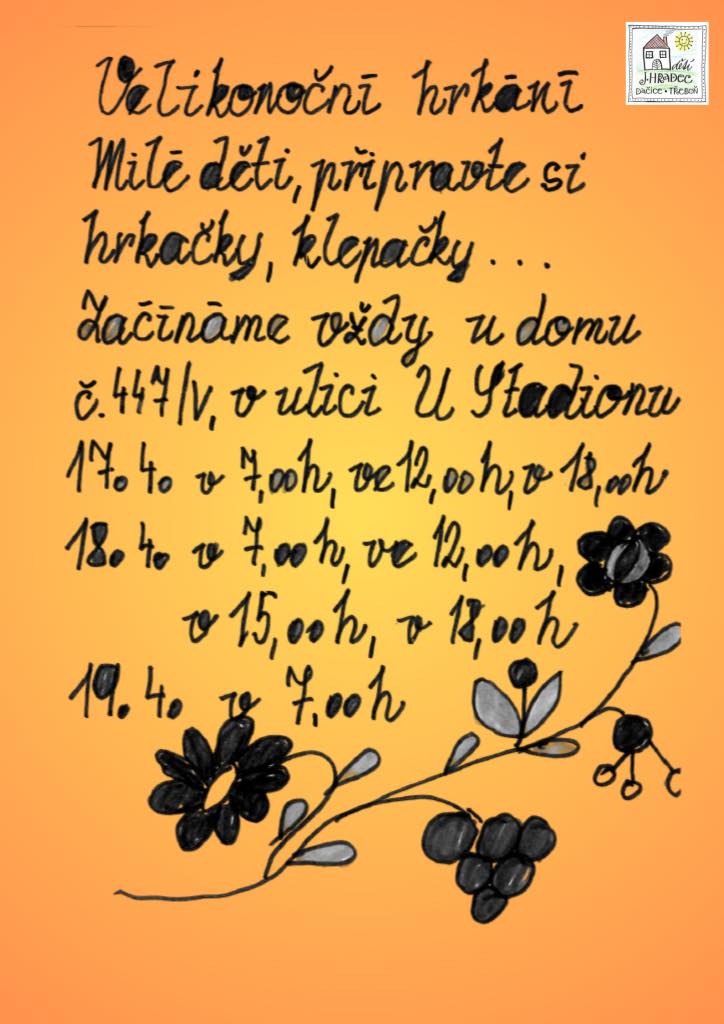 děti
J. HRADEC
DAČICE • TŘEBOŇ
Velikonoční hrkání
Milé děti, připravte si
hrkačky, klepačky...
Začínáme vždy u domu
č. 447/V, v ulici U Stadionu
17. 4. v 7,00h, ve 12,00h, v 18,00h
18. 4. v 7,00h, ve 12,00h,
v 15,00h, v 18,00h
19. 4. v 7,00h